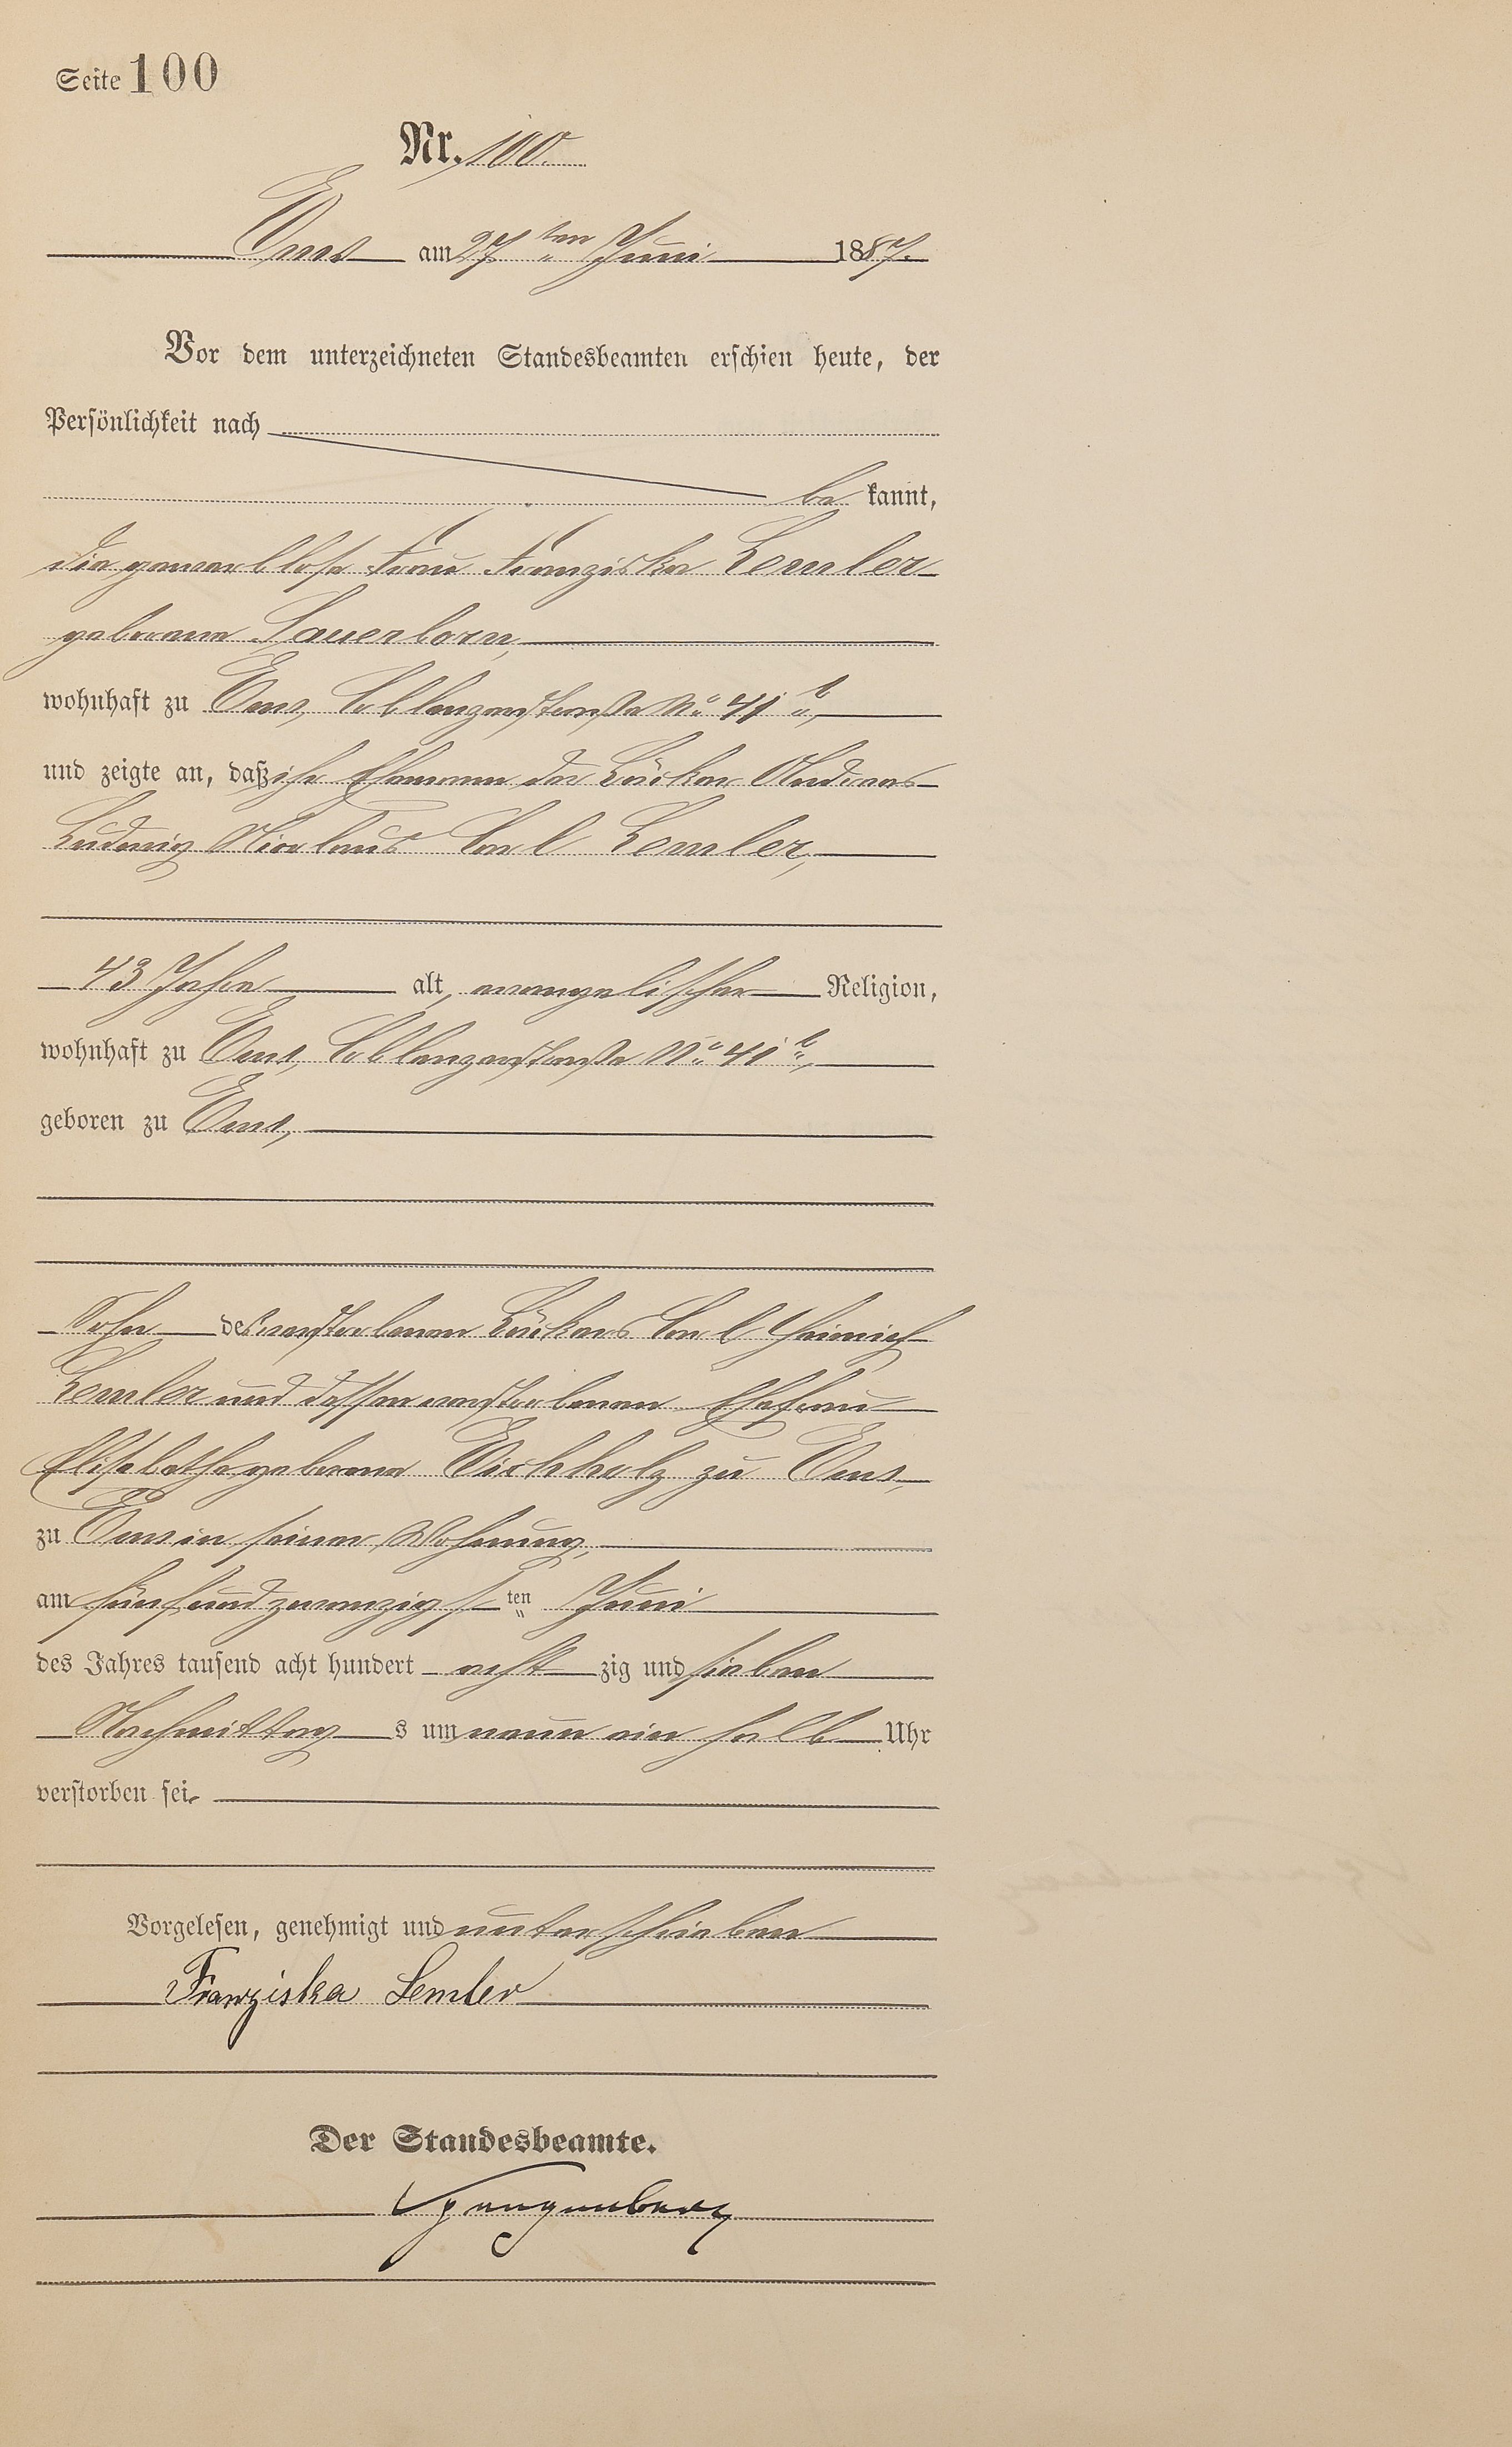 Seite 100
Nr. 100.
Ems am 27ten Juni 1887.
Vor dem unterzeichneten Standesbeamten erschien heute, der
Persönlichkeit nach
be kannt,
die gewerblose Frau Franziska Lemler
geborene Sauerborn,
wohnhaft zu Ems, Coblenzerstraße No. 41 b,
und zeigte an, daß ihr Ehemann der Bäcker Andreas
Ludwig Nicolaus Carl Lemler,
43 Jahre alt, evangelischer Religion,
wohnhaft zu Ems, Coblenzerstraße No. 41 b,
geboren zu Ems,
Sohn des verstorbenen Bäckers Carl Heinrich
Lemler und dessen verstorbenen Ehefrau
Elisabethe geborene Eichholz zu Ems,
zu Ems in seiner Wohnung,
am fünfundzwanzigsten Juni
des Jahres tausend acht hundert acht zig und sieben
Nachmittag s um neun ein halb Uhr
verstorben sei.
Vorgelesen, genehmigt und unterschrieben
Franziska Lemler
Der Standesbeamte.
Spangenberg